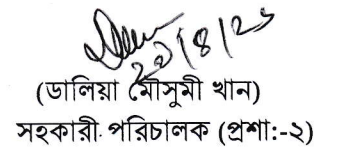 ২০/৪/২৬
(ডালিয়া মৌসুমী খান)
সহকারী পরিচালক (প্রশা:-২)